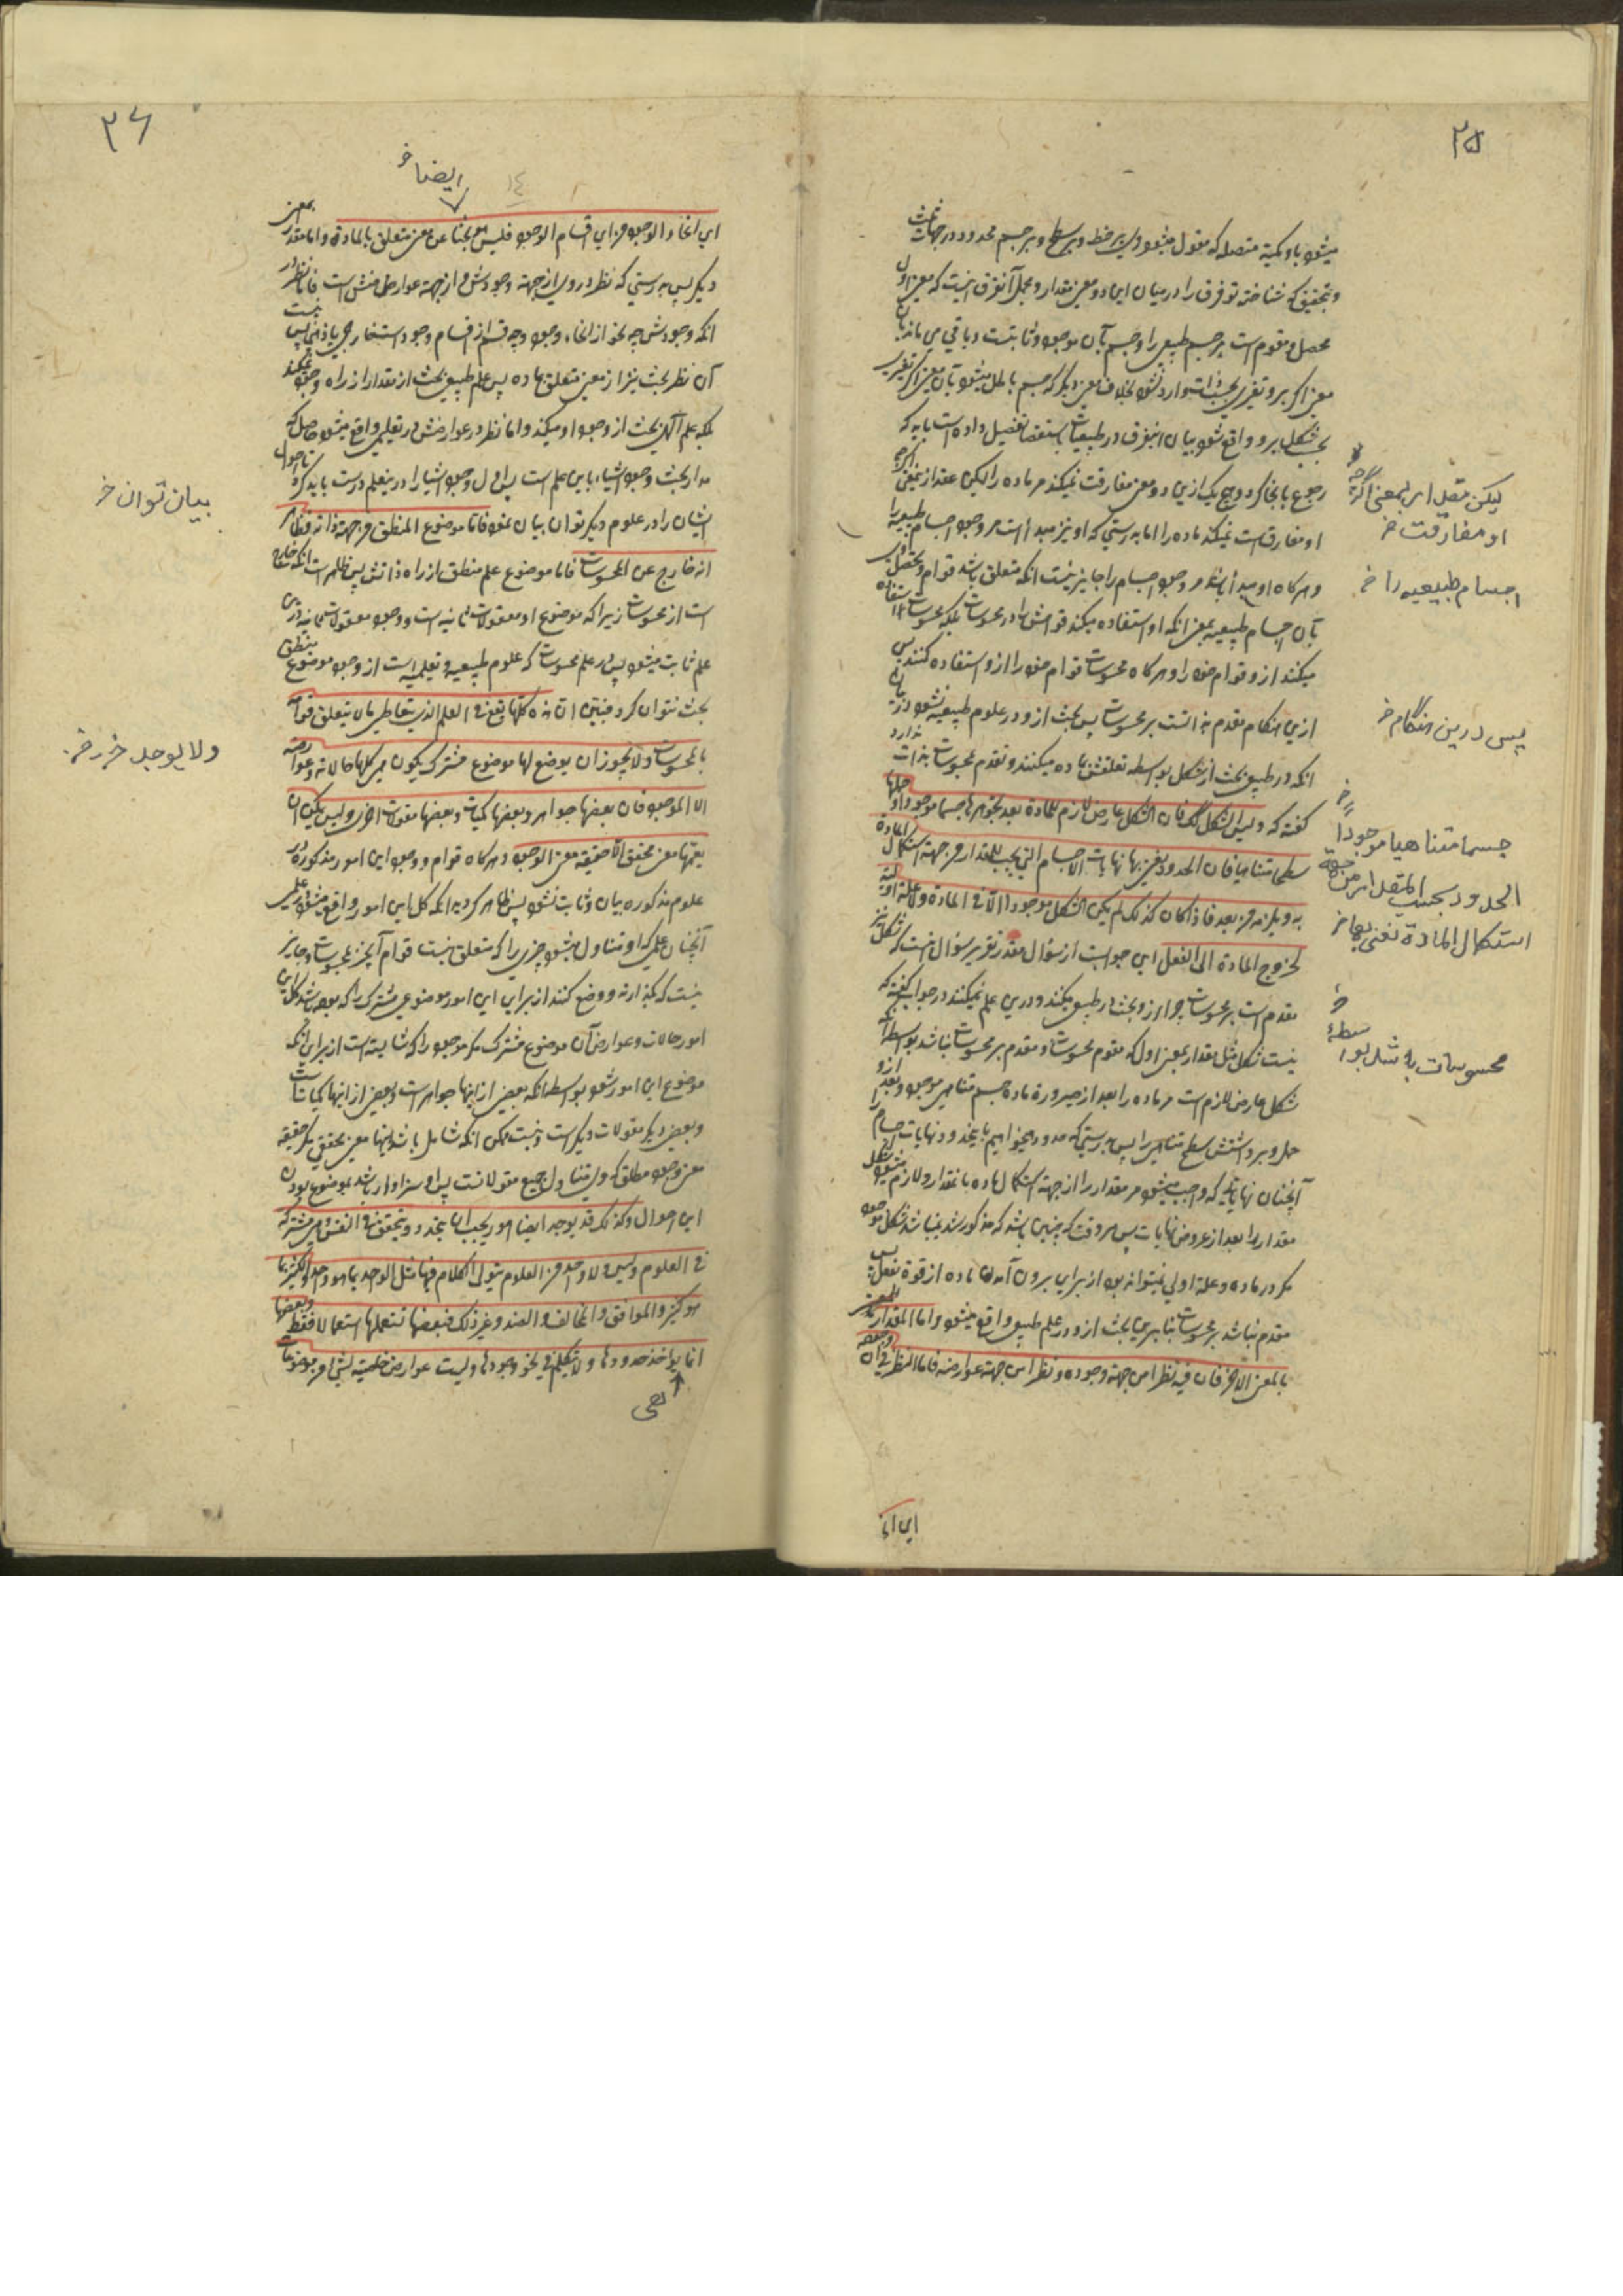 ۲۵
میشود باو کمیة متصله که مقول میشود بر خط و بر سطح و بر جسم محدود در جهات ثلث
و بتحقیق که شناخته تو فرق را در میان این دو معنی مقدار و مجمل آنفرق اینست که معنی اول
محصل و مقوم است مر جسم طبیعی را و جسم بآن موجود و ثابتست و باقی می ماند بآن
معنی اگر برو تغیری بحسب ذات وارد نشود بخلاف معنی دیگر که جسم باطل میشود بآن معنی اگر تغیری
بحسب شکل برو واقع شود بیان اینفرق در طبیعیات باستقصا تفضیل داده است باید که
رجوع بانجا کرد و هیچ یک ازین دو معنی مفارقت نمیکند مر ماده را لیکن مقدار بمعنی اگرچه
او مفارقت نمیکند ماده را اما بدرستی که او نیز مبدأ است مر وجود اجسام طبیعیه را
و هرگاه او مبدأ باشد مر وجود اجسام را جایز نیست انکه متعلق باشد قوام و تحصل او
بآن اجسام طبیعیه بمعنی انکه او استفاده میکند قوامش را از محسوسات بلکه محسوسات استفاده
میکنند ازو قوام خود را و هرگاه محسوسات قوام خود را ازو استفاده کنند پس
ازین هنگام مقدم بذاتست بر محسوسات پس بحث ازو در علوم طبیعیه نشود زیرا
انکه در طبیعی بحث از شکل بواسطه تعلقش بماده میکنند و تقدم بمحسوسات بذات ندارد
گفته که ولیس الشکل کذلک فان الشکل عارض لازم للمادة بعد تجوهرها جسما موجودا و حملها
سطحا متناهیا فان الحدود یعنی بها نهایات الاجسام التی یجب للمقدار من جهة استکمال المادة
به و یلزمه من بعد فاذا کان کذلک لم یکن الشکل موجودا الا فی المادة ولا علة اولیة
لخروج المادة الی الفعل این جوابست از سؤال مقدر تقریر سؤال اینست که شکل نیز
مقدم است بر محسوسات چرا ازو بحث در طبیعی میکنند و درین علم نمیکنند در جواب گفته که
نیست شکل مثل مقدار بمعنی اول که مقوم محسوسات و مقدم بر محسوسات باشد بواسطه آنکه
شکل عارض لازم است مر ماده را بعد از صیرورة ماده جسم متناهی موجود و بعد ازو
حمل و برداشتنش سطح متناهی را پس بدرستی که حدود میخواهیم باینحدود نهایات اجسام را
آنچنان نهایاتی که واجب میشود مر مقدار را از جهة استکمال ماده بمقدار و لازم میشود شکل
مقدار را بعد از عروض نهایات پس هر وقت که چنین باشد که مذکور شد نباشد شکل موجود
مگر در ماده و علة اولی نمیتواند بود از برای برون آمدن ماده از قوة بفعل پس
مقدم نباشد بر محسوسات بنابرین بحث ازو در علم طبیعی واقع میشود و اما المقدار
بالمعنی الاخر فان فیه نظرا من جهة وجوده و نظرا من جهة عوارضه فاما النظر فی ان وجوده
لیکن مقدار بمعنی اگرچه
او مفارقت خ
اجسام طبیعیه را خ
پس درین هنگام خ
جسما متناهیا موجودا
الحدود بحسب المقدار من جهة
استکمال المادة یعنی بها خ
محسوسات باشد بواسطه خ
ای انحا
۳۶
ایضا خ
ای انحاء الوجود من ای اقسام الوجود فلیس هو بحثا عن معنی متعلق بالمادة و اما مقدار بمعنی
دیگر پس بدرستی که نظر درو یا از جهة وجودش و از جهة عوارضش است فاما نظر در
انکه وجودش چه نحو از انحاء وجود و چه قسم از اقسام وجود است خارجی یا ذهنی پس نیست
آن نظر بحث نیز از معنی متعلق بماده پس علم طبیعی بحث از مقدار از راه وجود نمیکند
بلکه علم آلهی بحث از وجود او میکند و اما نظر در عوارضش در تعلیمی واقع میشود حاصل که
مدار بحث وجود اشیاء باین علم است پس اول وجود اشیا را درینعلم درست باید کرد تا احوال
ایشان را در علوم دیگر توان بیان نمود فاما موضوع المنطق من جهة ذاته فظاهر
انه خارج عن المحسوسات فاما موضوع علم منطق از راه ذاتش پس ظاهر است انکه خارج
است از محسوسات زیرا که موضوع او معقولات ثانیه است و وجود معقولات ثانیه درین
علم ثابت میشود پس در علم محسوسات که علوم طبیعیه و تعلیمیه است از وجود موضوع منطق
بحث نتوان کرد فتبین ان هذه کلها تقع فی العلم الذی یتعاطی ما لا یتعلق قوامه
بالمحسوسات ولا یجوز ان یوضع لها موضوع مشترک یکون هی کلها حالاته و عوارضه
الا الموجود فان بعضها جواهر و بعضها کمیات و بعضها مقولات اخری و لیس یمکن ان
یعمها معنی محقق الا حقیقة معنی الوجود و هرگاه قوام و وجود این امور مذکوره در
علوم مذکوره بیان و ثابت نشود پس ظاهر گردید انکه کل این امور واقع میشود در علمی
آنچنان علمی که او متناول میشود چیزی را که متعلق نیست قوام آنچیز بمحسوسات و جایز
نیست که بگذارند و وضع کنند از برای این امور موضوعی مشترک را که بوده باشد کل این
امور حالات و عوارض آن موضوع مشترک مگر موجود را که شایسته است از برای انکه
موضوع این امور شود بواسطه انکه بعضی ازاینها جواهر است و بعضی ازاینها کمیاتست
و بعضی دیگر مقولات دیگر است و نیست ممکن انکه شامل باشد اینها را معنی محققی مگر حقیقه
معنی وجود مطلق که متناول جمیع مقولاتست پس او سزاوار باشد بموضوع بودن
این احوال و کذلک قد یوجد ایضا امور یجب ان یتحدد و یتحقق فی النفس و هی مشترکة
فی العلوم و لیس ولا واحد من العلوم یتولی الکلام فیها مثل الواحد بما هو واحد و الکثیر بما
هو کثیر و الموافق و المخالف و الضد و غیر ذلک فبعضها تستعملها استعمالا فقط و بعضها
انما یؤاخذ حدودها ولا یتکلم فی نحو وجودها و لیست عوارض خاصیة لشیء من موضوعات
بیان توان خ
ولا یوجد خ